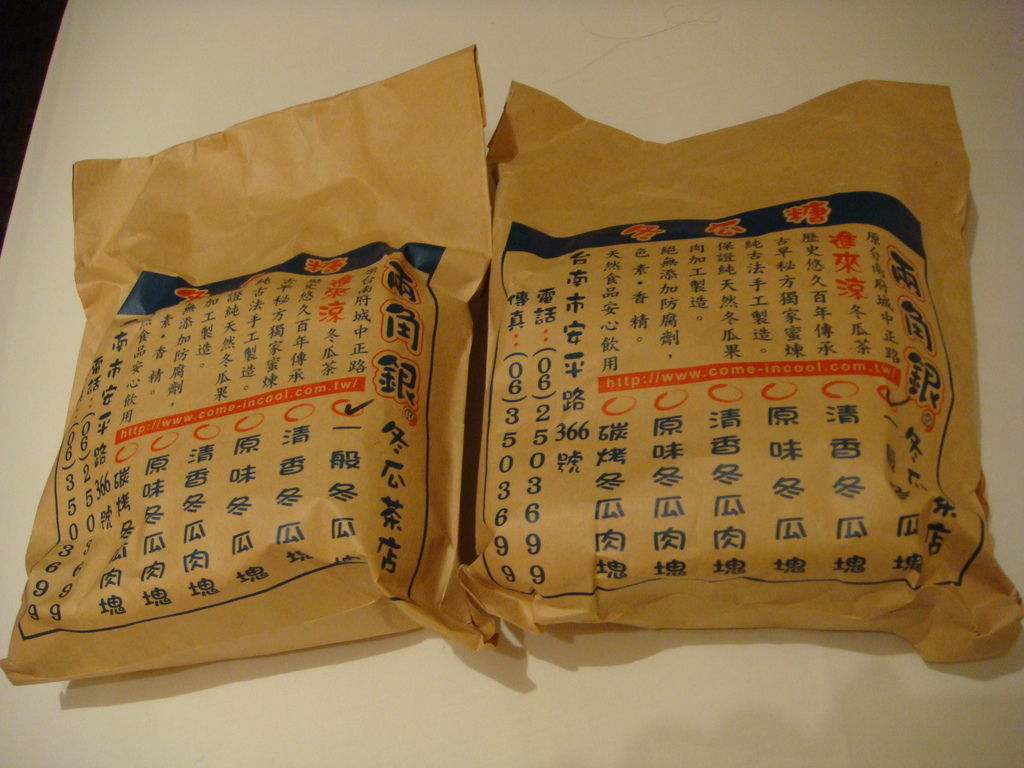 兩角銀® 冬瓜茶店
糖
原台南府城中正路
進來涼 冬瓜茶
歷史悠久百年傳承
古早秘方獨家蜜煉
純古法手工製造。
保證純天然冬瓜果
肉加工製造。
絕無添加防腐劑，
色素·香精。
天然食品安心飲用
http://www.come-incool.com.tw/
✓一般冬瓜塊
清香冬瓜塊
原味冬瓜塊
清香冬瓜肉塊
原味冬瓜肉塊
碳烤冬瓜肉塊
台南市安平路366號
電話：(06)2503699
傳真：(06)3503699
兩角銀® 冬瓜茶店
冬瓜糖
原台南府城中正路
進來涼 冬瓜茶
歷史悠久百年傳承
古早秘方獨家蜜煉
純古法手工製造。
保證純天然冬瓜果
肉加工製造。
絕無添加防腐劑，
色素·香精。
天然食品安心飲用
http://www.come-incool.com.tw/
✓一般冬瓜塊
清香冬瓜塊
原味冬瓜塊
清香冬瓜肉塊
原味冬瓜肉塊
碳烤冬瓜肉塊
台南市安平路366號
電話：(06)2503699
傳真：(06)3503699